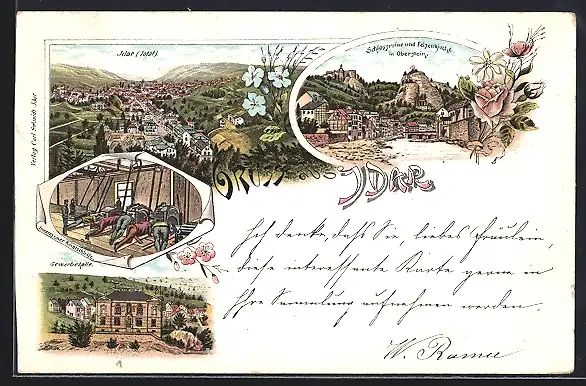 Idar (Total).
Schlossruine und Felsenkirche
in Oberstein.
Verlag Carl Schmidt Idar
Gruss aus Idar
Gewerbehalle.
Ich denke, daß Sie, liebes Fräulein,
diese interessante Karte gerne in
Ihre Sammlung aufnehmen werden.
W.